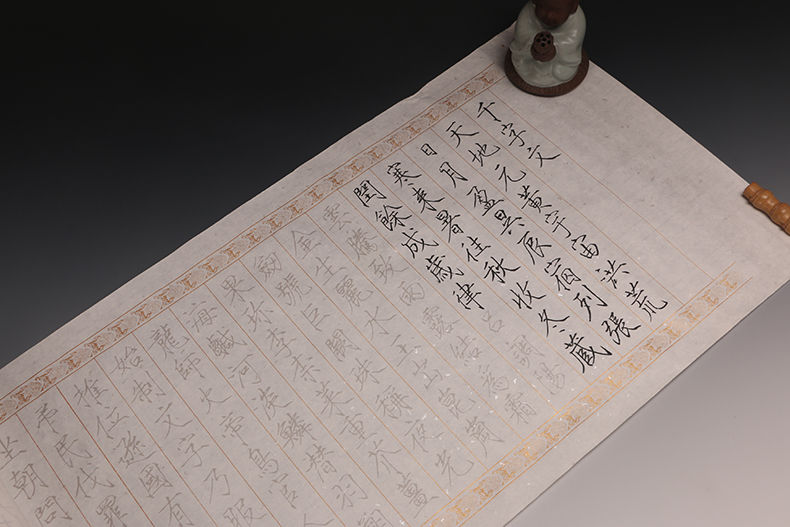 千字文
天地元黄宇宙洪荒
日月盈昃辰宿列張
寒来暑往秋收冬蔵
閏餘成歳律吕調陽
雲騰致雨露結為霜
金生麗水玉出崑岡
劍號巨闕珠稱夜光
果珎李柰菜重芥薑
海鹹河淡鱗潜羽翔
龍師火帝鳥官人
始制文字乃服
推位遜國有
弔民伐罪
坐朝問